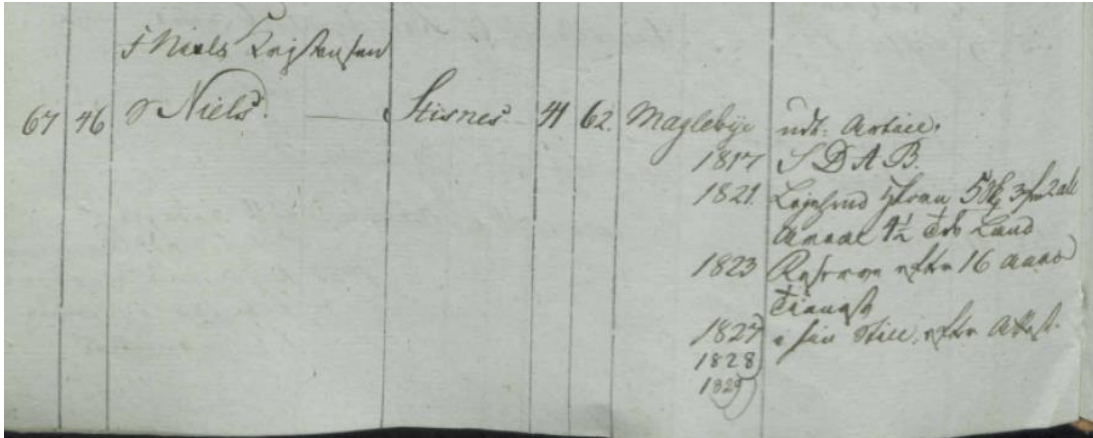 F Niels Kristensen
67 46 S Niels. — Stisnes 41 62. Magleby udt: Artill.
1817 S D A B.
1821. Lejehuus 58½ 3
Areal 4½ Td Land
1823 Reserven efter 16 Aars
Tieneste
1827 i sin Still. efter Attest.
1828
1829